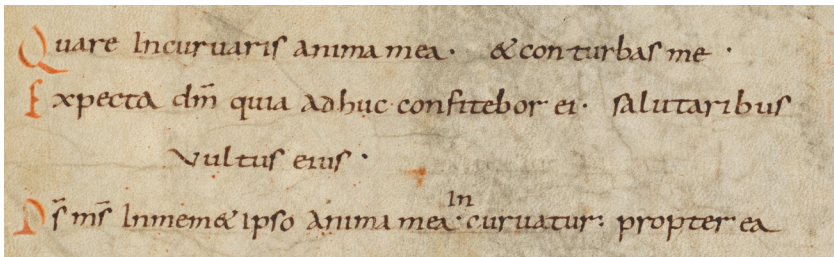 Quare Incuruaris anima mea· & conturbas me ·
Expecta dm̄ quia adhuc confitebor ei· salutaribus
vultus eius ·
Ds̄ ms̄ Inmem& ipso anima mea· Incuruatur: propter ea